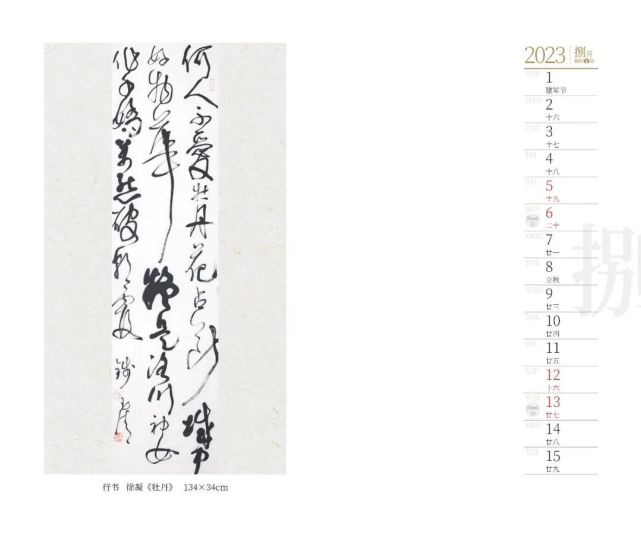 何人不愛牡丹花占斷城中
好物華疑是洛川神女
作千嬌萬態破朝霞
行书 徐凝《牡丹》 134×34cm
2023 捌月
TUE 1
建军节
WED 2
十六
THU 3
十七
FRI 4
十八
SAT 5
十九
SUN 6
二十
MON 7
廿一
TUE 8
立秋
WED 9
廿三
THU 10
廿四
FRI 11
廿五
SAT 12
十六
SUN 13
廿七
MON 14
廿八
TUE 15
廿九
捌